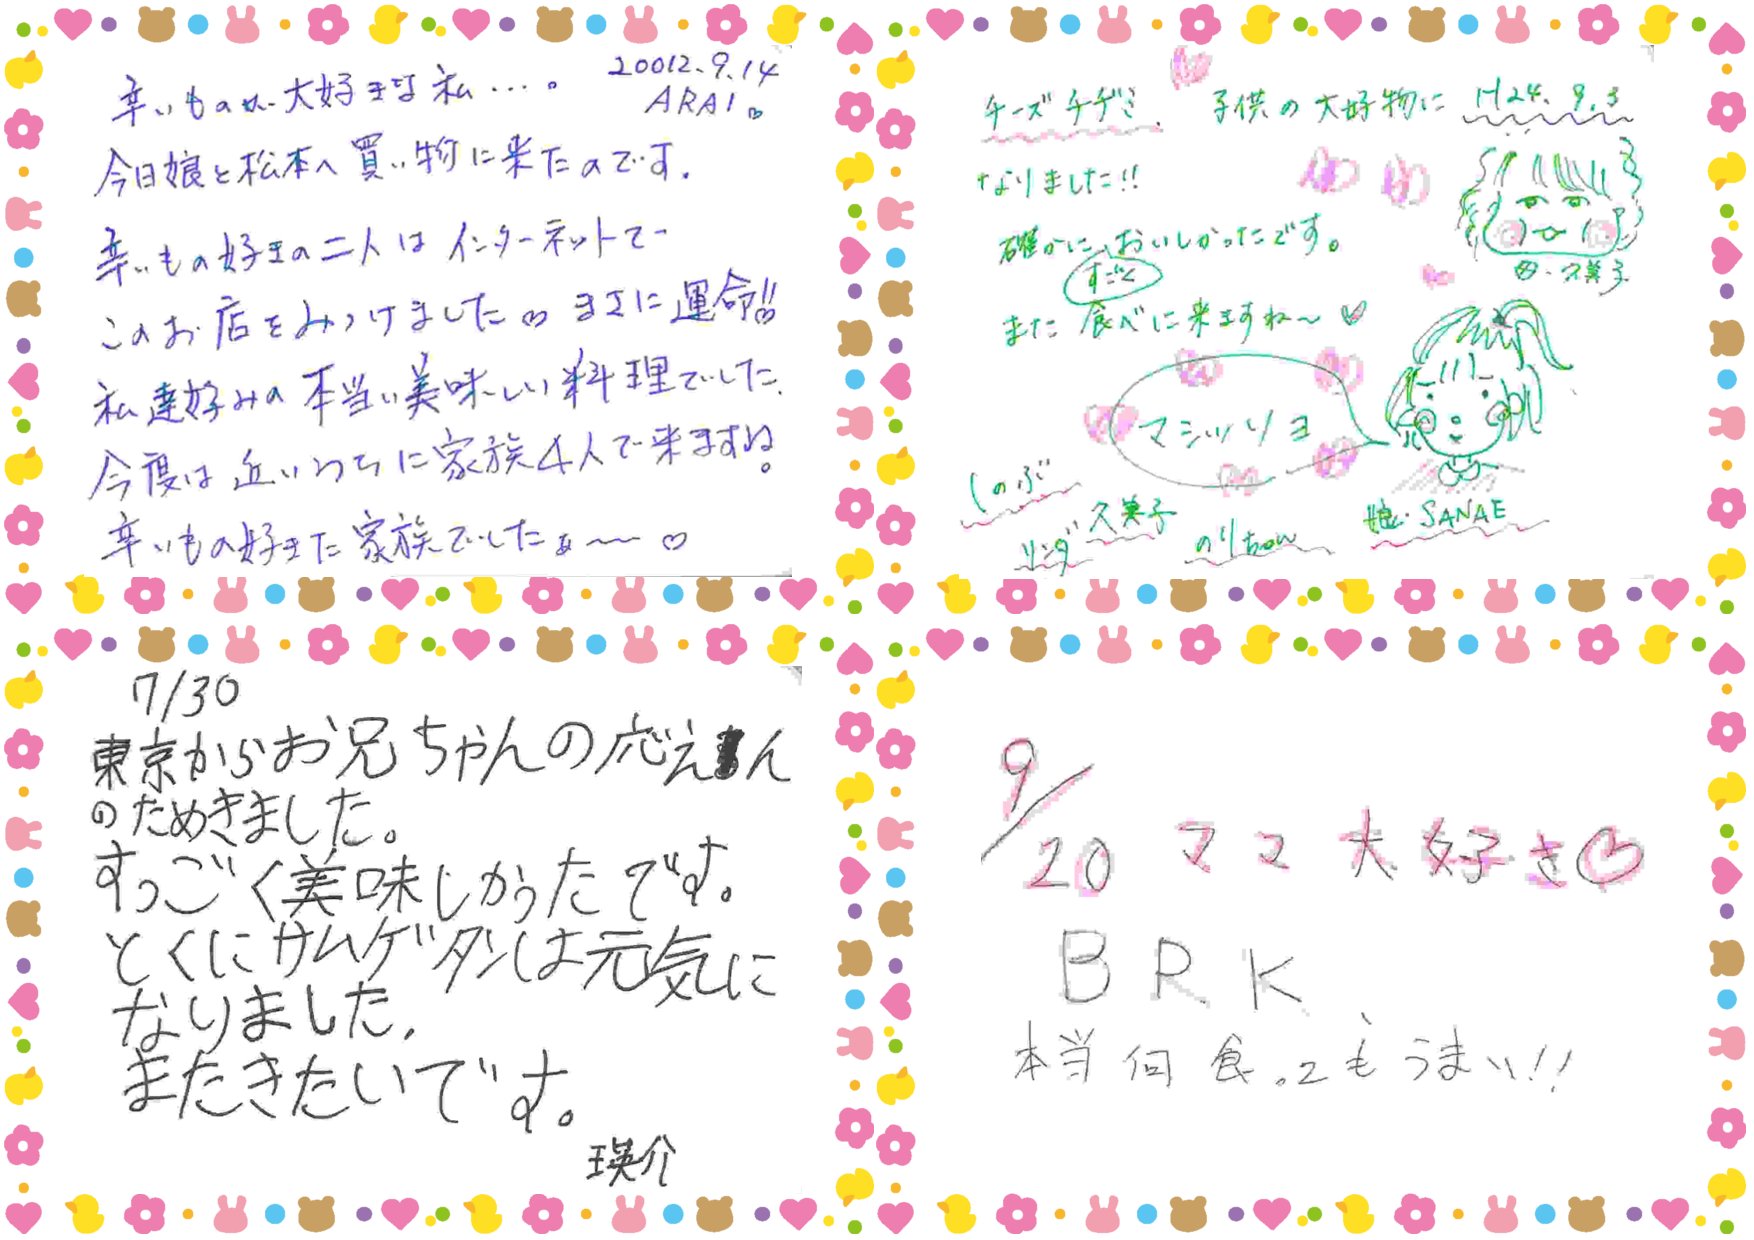 20012.9.14
ARAI
辛いものが大好きな私…。
今日娘と松本へ買い物に来たのです。
辛いもの好きの二人はインターネットで
このお店をみつけました♡ まさに運命!!
私達好みの本当に美味しい料理でした.
今度は近いうちに家族4人で来ますね。
辛いもの好きた家族でしたぁ〜〜♡
チーズチヂミ 子供の大好物に H24.9.3
なりました!!
確かに、おいしかったです。
すごく
また食べに来ますね〜♡
母・久美子
マシッソヨ
しのぶ
リンダ
久美子
のりちゃん
娘・SANAE
7/30
東京からお兄ちゃんの応えん
のためきました。
すっごく美味しかったです。
とくにサムゲタンは元気に
なりました.
またきたいです。
瑛介
9/20 ママ大好き♡
BRK
本当何食ってもうまい!!